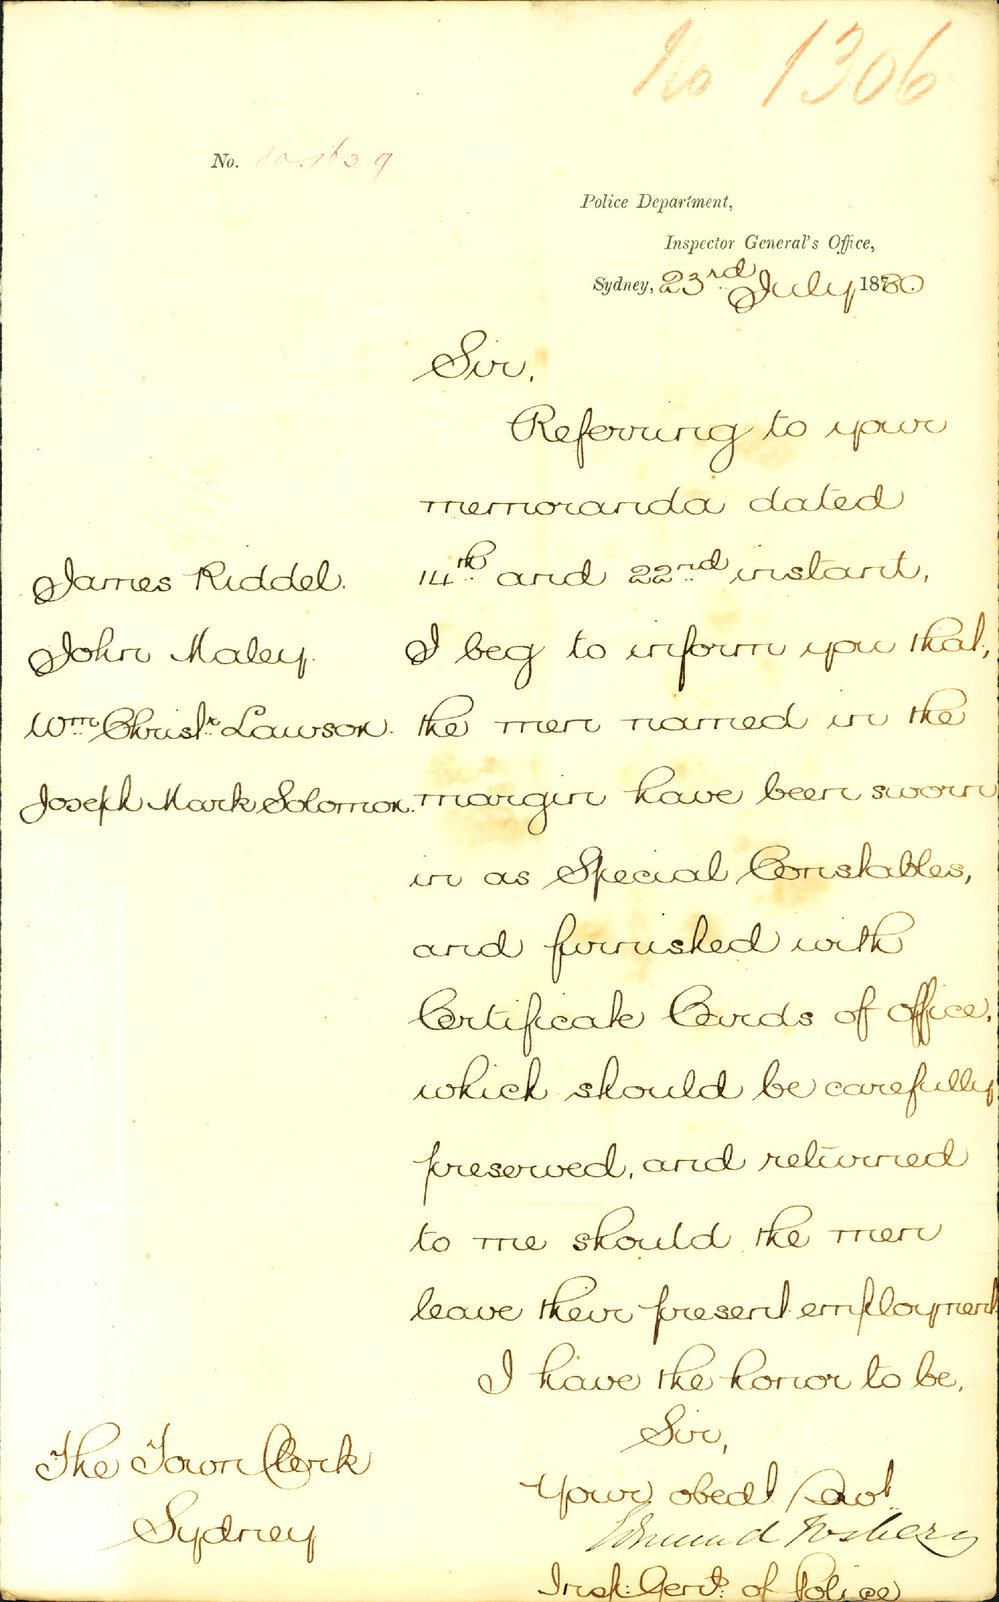 No 1306
No. 80.1639
Police Department,
Inspector General's Office,
Sydney, 23rd July 1880.
Sir,
Referring to your
memoranda dated
14th and 22nd instant,
I beg to inform you that,
the men named in the
margin have been sworn
in as Special Constables,
and furnished with
Certificate Cards of office,
which should be carefully
preserved, and returned
to me should the men
leave their present employment
I have the honor to be,
Sir,
Your obedt Servt
Edmund Fosbery
Insp: Genl: of Police
James Riddel.
John Maley.
Wm Christr Lawson.
Joseph Mark Solomon.
The Town Clerk
Sydney